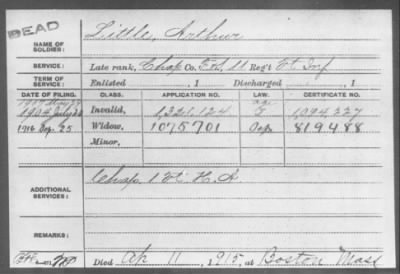 DEAD
Little, Arthur
NAME OF SOLDIER:
SERVICE: Late rank, Chap Co. F.S, 11 Reg't Vt. Inf
TERM OF SERVICE: Enlisted , 1 Discharged , 1
DATE OF FILING. CLASS. APPLICATION NO. LAW. CERTIFICATE NO.
1904 July Invalid, 1,321,124 1,094,227
1916 Sep. 25 Widow, 1075701 819488
Minor,
ADDITIONAL SERVICES: Chap. 1 Vt. H. A.
REMARKS:
Died Ap 11, 1915, at Boston Mass